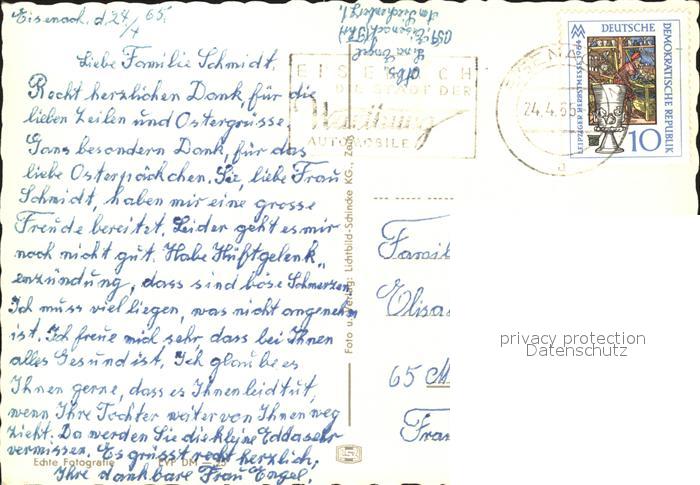 Eisenach, d. 24/4 65.
Liebe Familie Schmidt.
Recht herzlichen Dank, für die
lieben Zeilen und Ostergrüsse.
Ganz besondern Dank, für das
liebe Osterpäckchen. Sie, liebe Frau
Schmidt, haben mir eine grosse
Freude bereitet. Leider geht es mir
noch nicht gut. Habe Hüftgelenk„
enzündung, dass sind böse Schmerzen.
Ich muss viel liegen, was nicht angenehm
ist. Ich freue mich sehr, dass bei Ihnen
alles Gesund ist. Ich glaube es
Ihnen gerne, dass es Ihnen leid tut,
wenn Ihre Tochter weiter von Ihnen weg
zieht. Da werden Sie die kleine Edda sehr
vermissen. Es grüsst recht herzlich,
Ihre dankbare Frau Engel.
Echte Fotografie EVP DM
Abs.
Lina Engel
Eisenach
Foto u. Verlag: Lichtbild-Schincke KG.,
EISENACH
DIE STADT DER
Wartburg
AUTOMOBILE
EISENA
24.4.65
a
DEUTSCHE
DEMOKRATISCHE REPUBLIK
LEIPZIGER HERBSTMESSE 1964
10
Famil
Elisa
65
Fra
privacy protection
Datenschutz